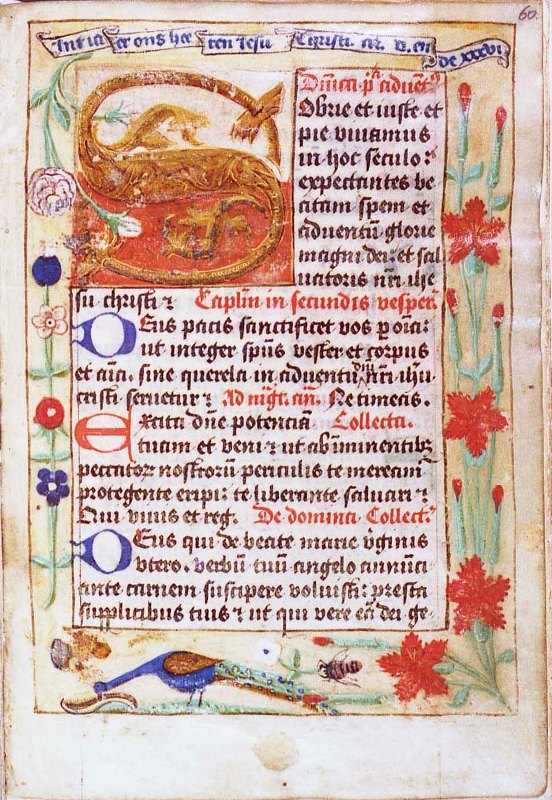 60.
Int iaer ons hee ren Iesu Christi .xv. c. en de xxxvi
Dñica pͣ aduēt⁹
Obrie et iuste et
pie viuamus
in hoc seculo:
expectantes be
atam spem et
aduentū glorie
magni dei: et sal
uatoris nr̄i ihe
su christi ⁊ Caplm̄ in secundis vesper̄
Deus pacis sanctificet vos p oīa:
ut integer spūs vester et corpus
et aīa. sine querela in aduentu dñi nr̄i ihū
cristi seruetur ⁊ Ad mgt. an̄. Ne timeas.
Excita dñe potenciā Collecta.
tuam et veni ⁊ ut ab īminentibꝫ
peccatorꝝ nostrorū periculis te meream̄
protegente eripi: te liberante saluari ⁊
Qui viuis et reg. De domina Collect.
Deus qui de beate marie v̄ginis
vtero. verbū tuū angelo annūci
ante carnem suscipere voluisti: presta
supplicibus tuis ⁊ ut qui vere eā dei ge-